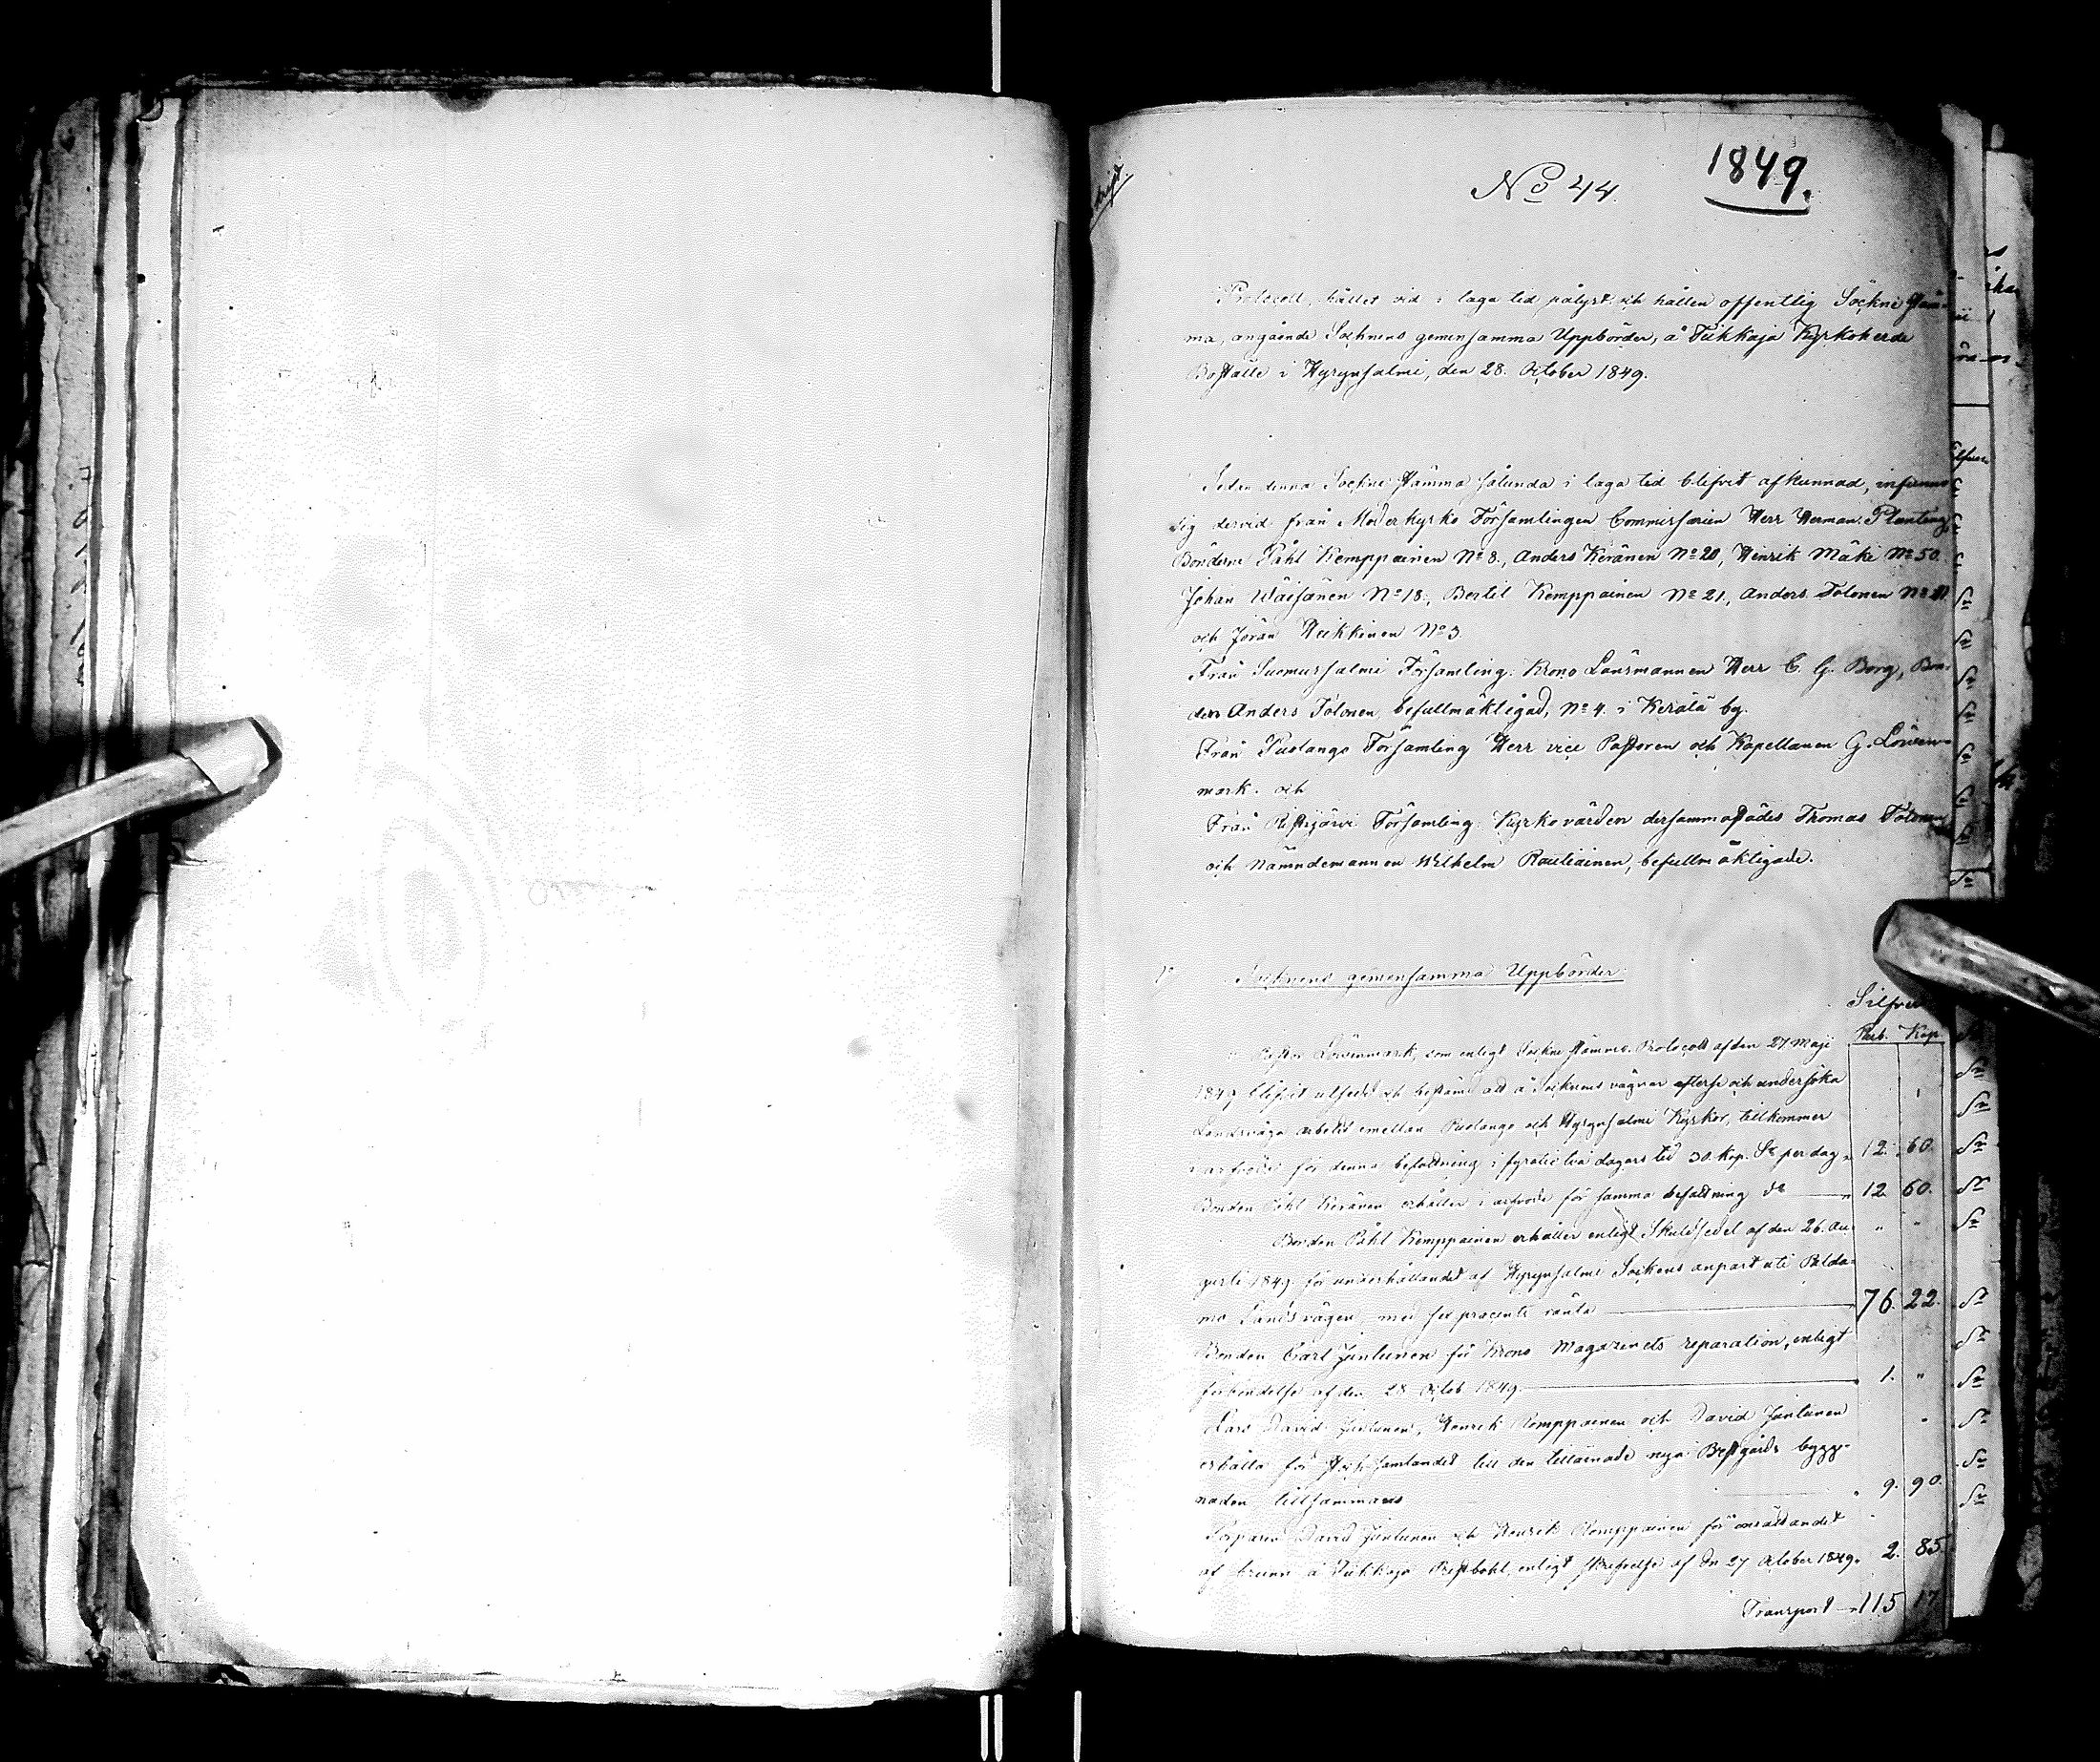 1849.
No 44.
Protocoll, hållet vid i laga tid pålyst och hållen offentlig Sockne Stäm-
ma, angående Socknens gemensamma Uppbörder, å Tükkaja Kyrkoherde
Boställe i Hyrynsalmi, den 28. October 1849.
Sedan denna Sockne Stämma sålunda i laga tid blifvit afkunnad, infunno
sig dervid från Moderkyrko Församlingen Commissarien Herr Herman Planting,
Bönderne Påhl Kemppainen No 8., Anders Keränen No 20, Henrik Mäki No 50.
Johan Wäisänen No 18., Bertil Kemppainen No 21., Anders Tolonen No
och Jöran Heikkinen No 3.
Från Suomussalmi Församling: Krono Länsmannen Herr C. G. Borg, Bon-
den Anders Tolonen befullmäktigad, No 4. i Kerälä by.
Från Puolango Församling Herr vice Pastoren och Kapellanen G. Löwen-
mark. och
Från Ristijärvi Församling: Kyrkovärden dersammastädes Thomas Tolonen
och Nämndemannen Wilhelm Rautiainen, befullmäktigade.
1o Socknens gemensamma Uppbörder
Silfver
Rub. Kop.
Pastor Löwenmark, som enligt Sockne Stämmo Protocoll af den 27 Maji
1849 blifvit utsedd och bestämd att å Socknens vägnar efterse och undersöka
Landsvägs arbetet emellan Puolango och Hyrynsalmi Kyrkor, tillkommer
i arfvode för denna befattning i fyratio två dagars tid 30. Kop. Sr per dag " 12. 60.
Bonden Påhl Keränen erhåller i arfvode för samma befattning do " 12. 60.
Bonden Påhl Kemppainen erhåller enligt Skuldsedel af den 26. Au- " "
gusti 1849 för underhållandet af Hyrynsalmi Sockens anpart uti Palda-
mo Landsvägen, med sex procents ränta 76. 22.
Bonden Carl Juntunen för Krono Magazinets reparation, enligt
förbindelse af den 28 Octob 1849. 1. "
Lars David Juntunen, Henrik Komppainen och David Juntunen
erhålla för samlandet till den tillärnade nya Prestgårds bygg-
naden tillsammans " 9. 90.
Torparen David Juntunen och Henrik Komppainen för
af brunn å Tükkaja Prestbohl, enligt skrifvelse af den 27 October 1849. 2. 85.
Transport 115 17